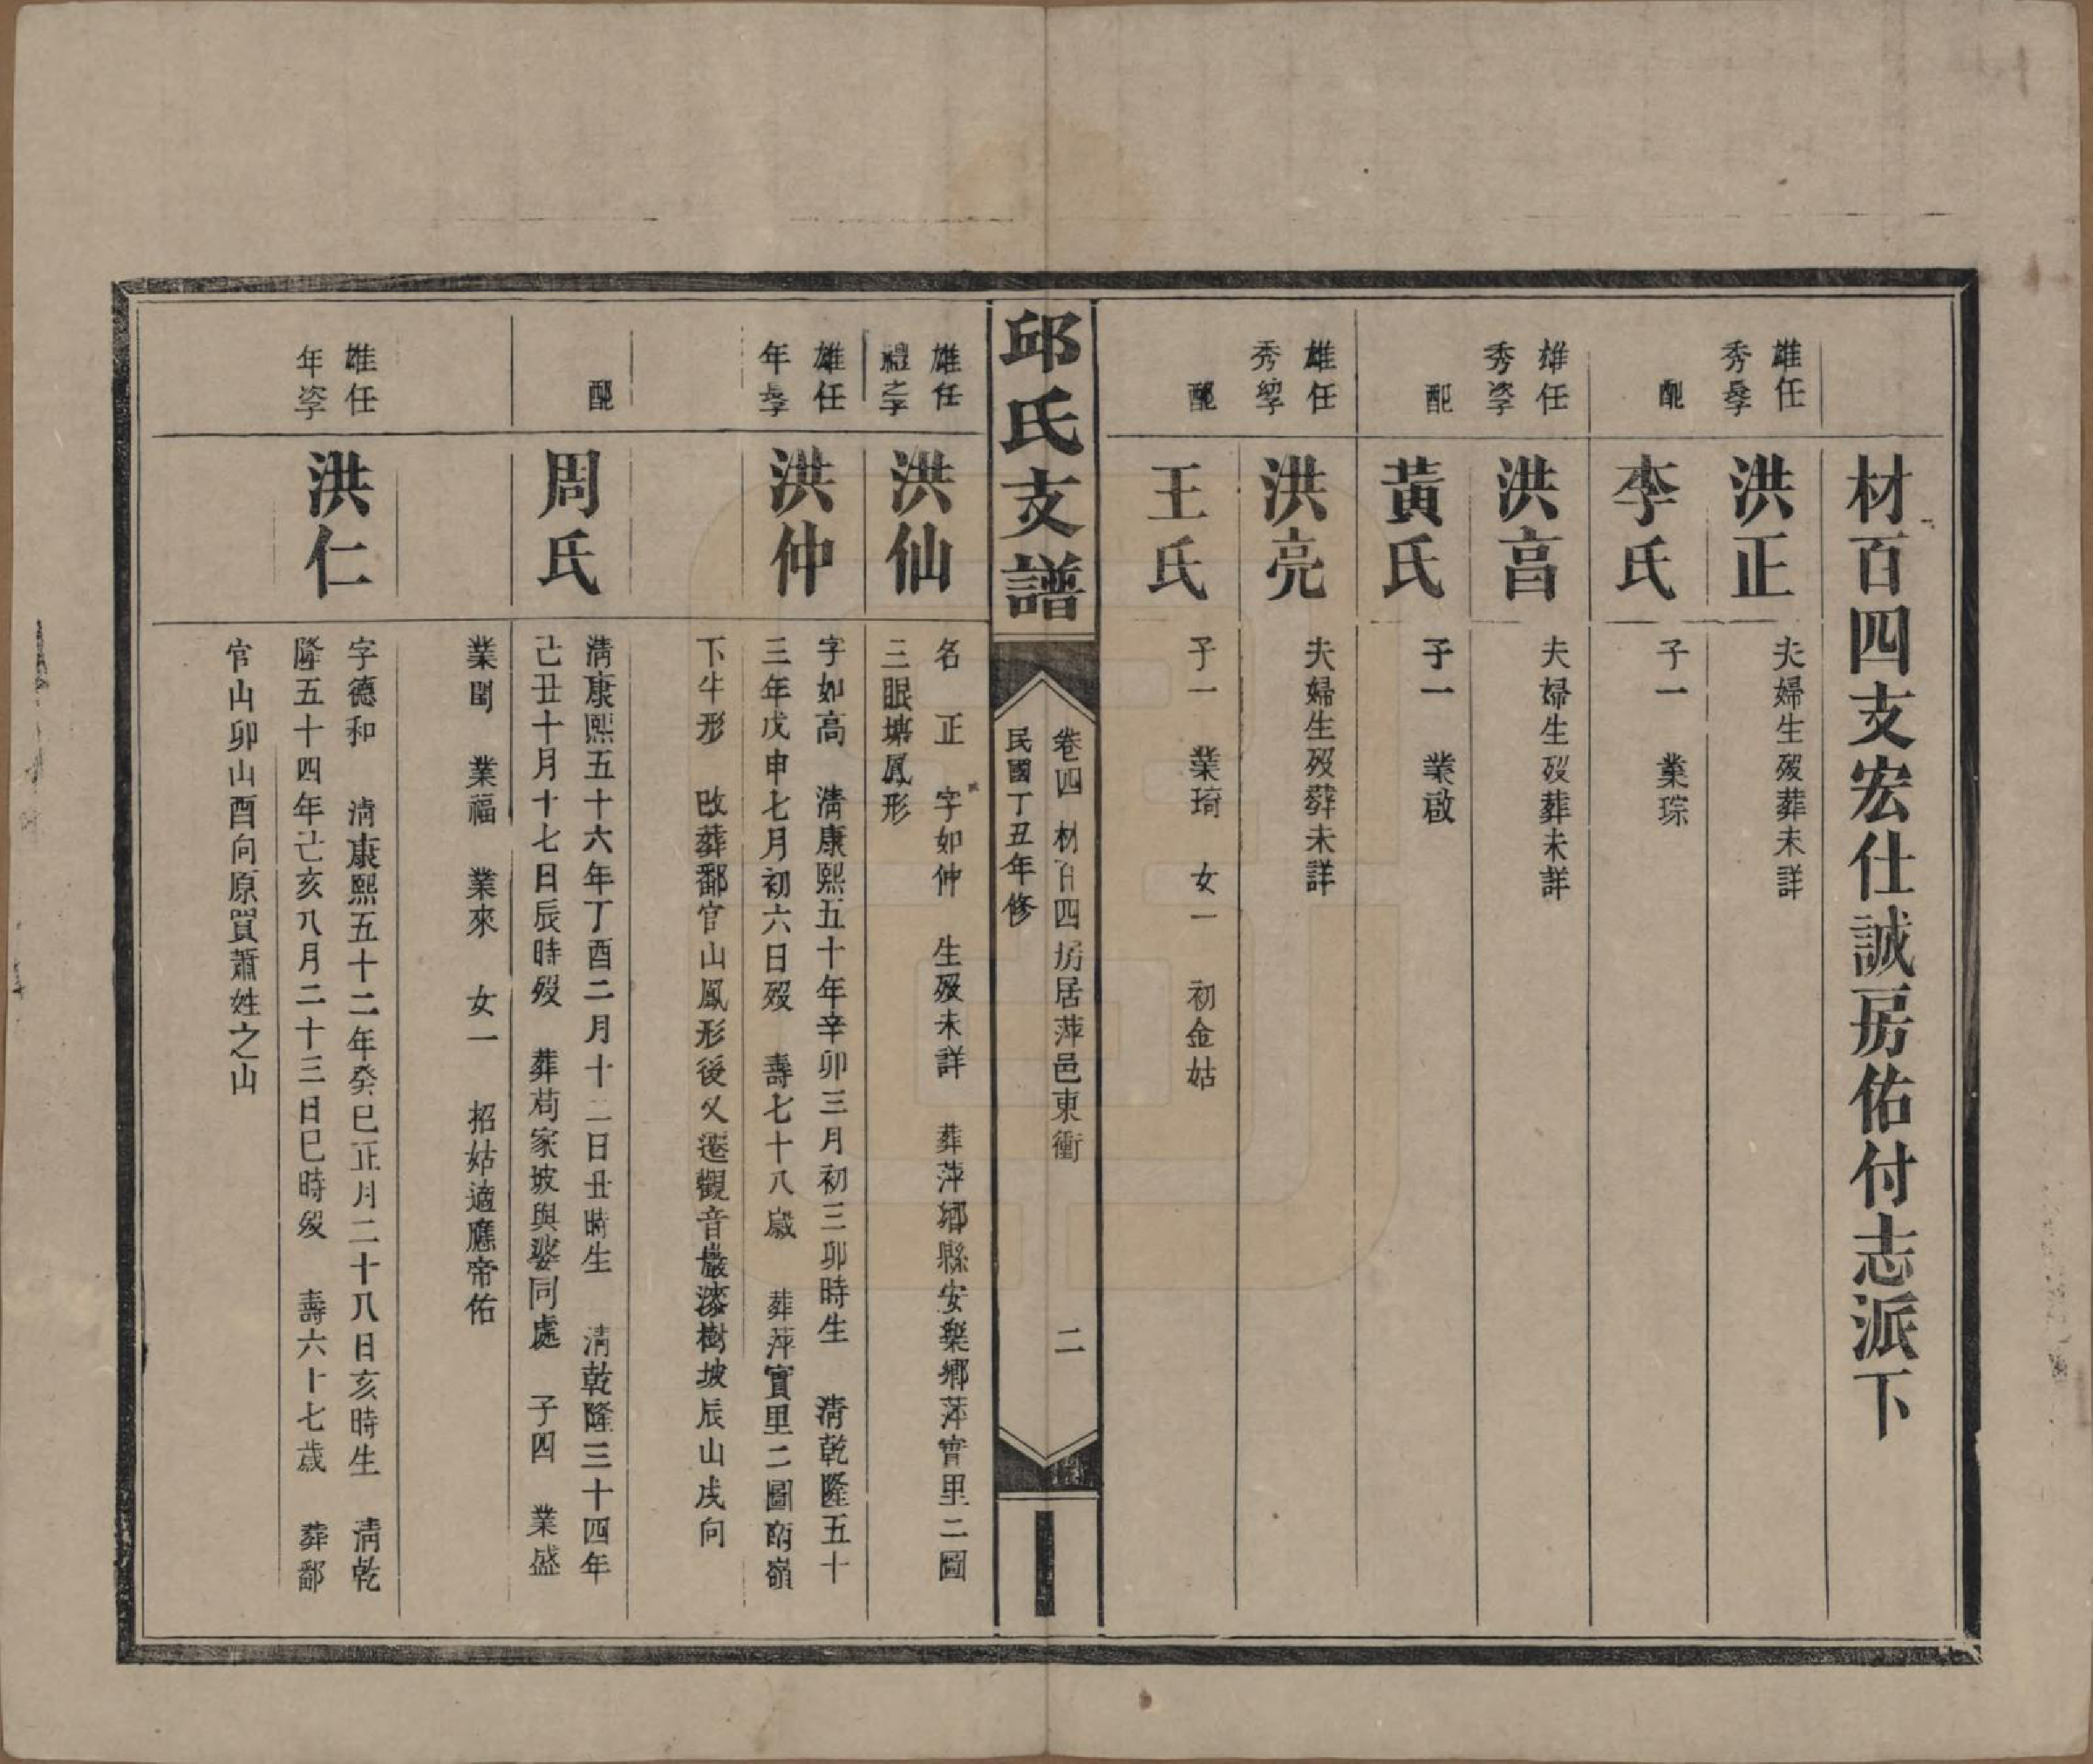 材百四支宏仕誠房佑付志派下
雄任
秀長子
洪正
夫婦生歿葬未詳
配
李氏
子一　業琮
雄任
秀次子
洪昌
夫婦生歿葬未詳
配
黃氏
子一　業啟
雄任
秀子
洪亮
夫婦生歿葬未詳
配
王氏
子一　業琦　女一　初金姑
邱氏支譜
卷四　材百四房居萍邑東衝　二
民國丁丑年修
雄任
禮之子
洪仙
名　正　字如仲　生歿未詳　葬萍鄉縣安樂鄉萍實里二圖
三眼塘鳳形
雄任
年長子
洪仲
字如高　清康熙五十年辛卯三月初三卯時生　清乾隆五十
三年戊申七月初六日歿　壽七十八歲　葬萍實里二圖南嶺
下牛形　改葬鄱官山鳳形後又遷觀音巖漆樹坡辰山戌向
配
周氏
清康熙五十六年丁酉二月十二日丑時生　清乾隆三十四年
己丑十月十七日辰時歿　葬苟家坡與婆同處　子四　業盛
業閏　業福　業來　女一　招姑適應帝佑
雄任
年次子
洪仁
字德和　清康熙五十二年癸巳正月二十八日亥時生　清乾
隆五十四年己亥八月二十三日巳時歿　壽六十七歲　葬鄱
官山卯山酉向原買蕭姓之山